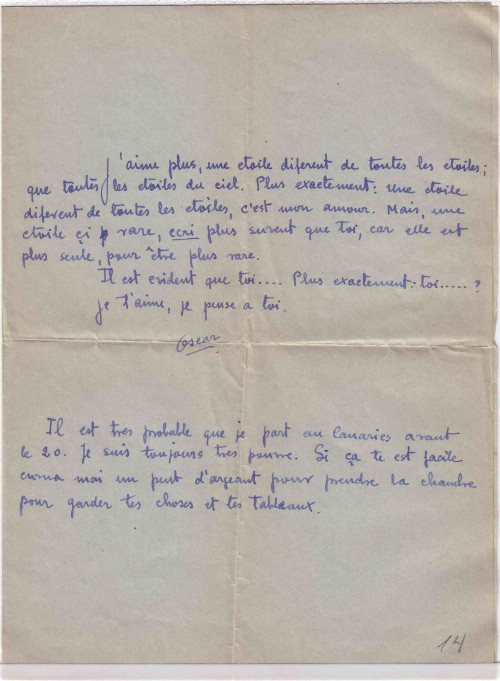 J'aime plus, une etoile diferent de toutes les etoiles;
que toutes les etoiles du ciel. Plus exactement: une etoile
diferent de toutes les etoiles, c'est mon amour. Mais, une
etoile çi rare, ecri plus suvent que toi, car elle est
plus seule, pour être plus rare.
Il est evident que toi.... Plus exactement: toi.....?
je t'aime, je pense a toi.
Oscar
Il est tres probable que je part au Canaries avant
le 20. Je suis toujours tres pauvre. Si ça te est facile
mai un peut d'argeant pour prendre la chambre
pour garder tes choses et tes tableaux.
14